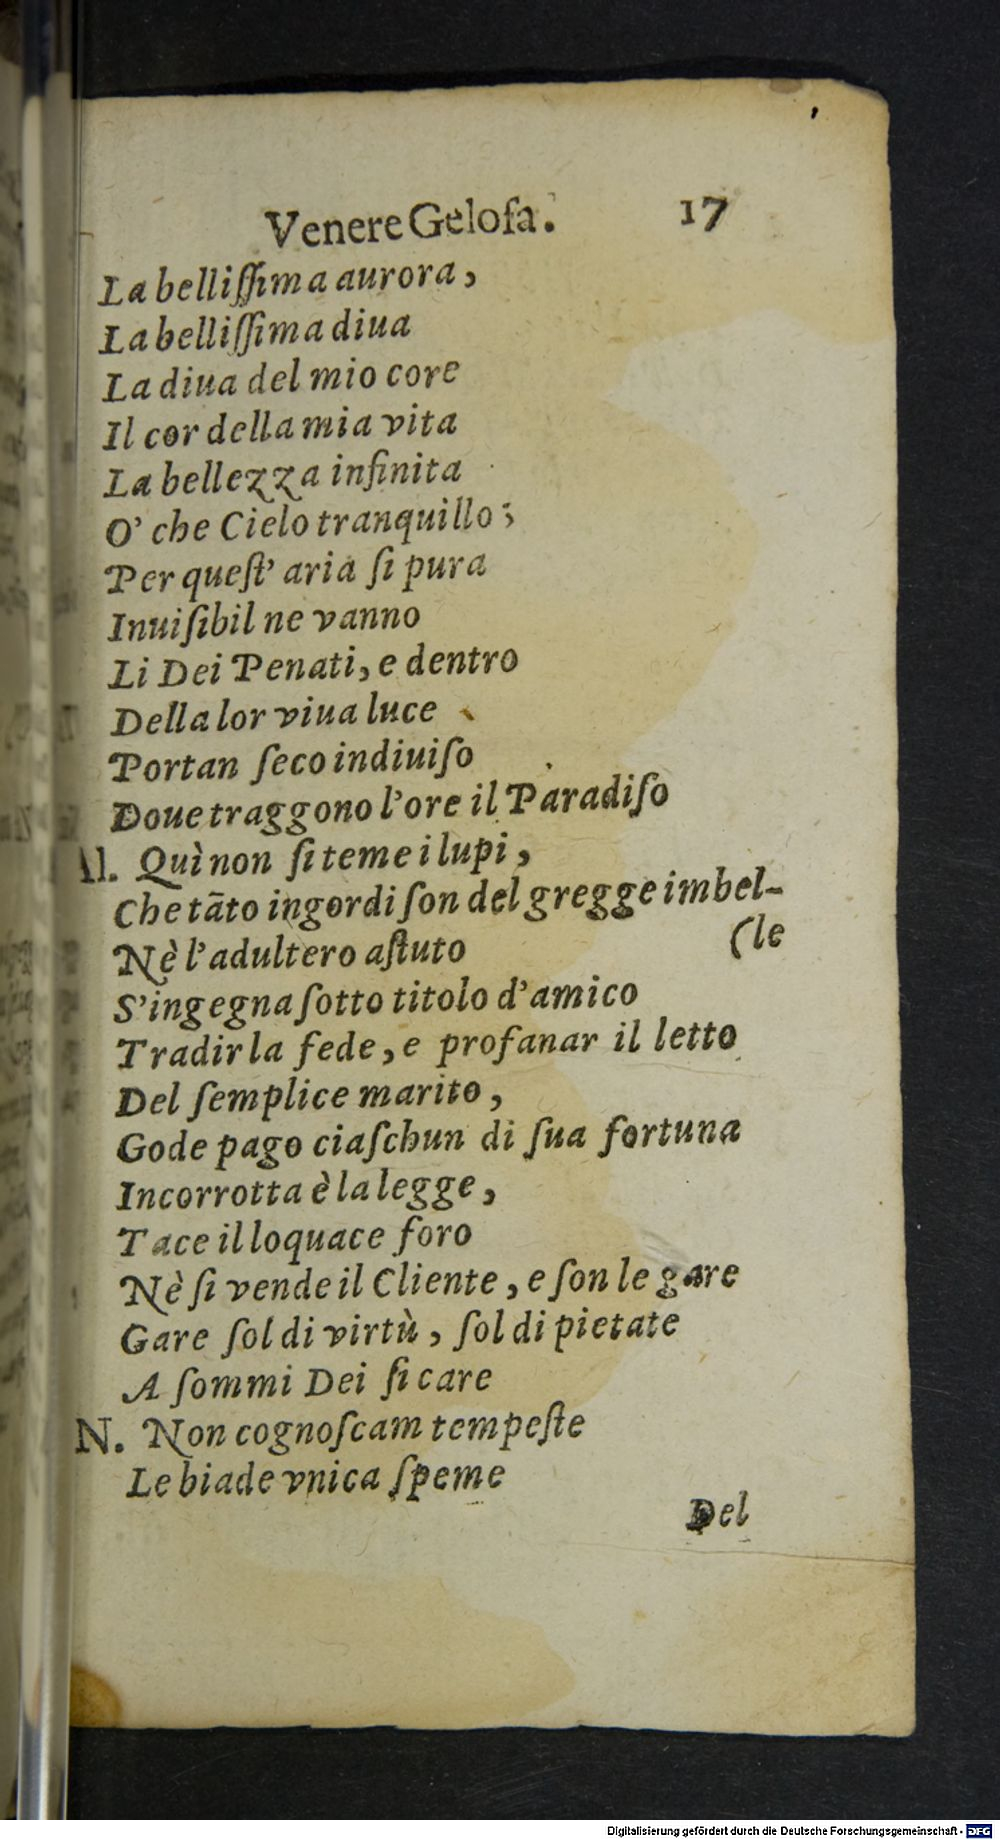 Venere Geloſa. 17
La belliſſima aurora,
La belliſſima diua
La diua del mio core
Il cor della mia vita
La bellezza infinita
O' che Cielo tranquillo;
Per queſt' aria ſi pura
Inuiſibil ne vanno
Li Dei Penati, e dentro
Della lor viua luce
Portan ſeco indiuiſo
Doue traggono l'ore il Paradiſo
Al. Quì non ſi teme i lupi,
Che tāto ingordi ſon del gregge imbel-
(le
Nè l'adultero aſtuto
S'ingegna ſotto titolo d'amico
Tradir la fede, e profanar il letto
Del ſemplice marito,
Gode pago ciaſchun di ſua fortuna
Incorrotta è la legge,
Tace il loquace foro
Nè ſi vende il Cliente, e ſon le gare
Gare ſol di virtù, ſol di pietate
A ſommi Dei ſi care
N. Non cognoſcam tempeſte
Le biade vnica ſpeme
Del
Digitalisierung gefördert durch die Deutsche Forschungsgemeinschaft - DFG